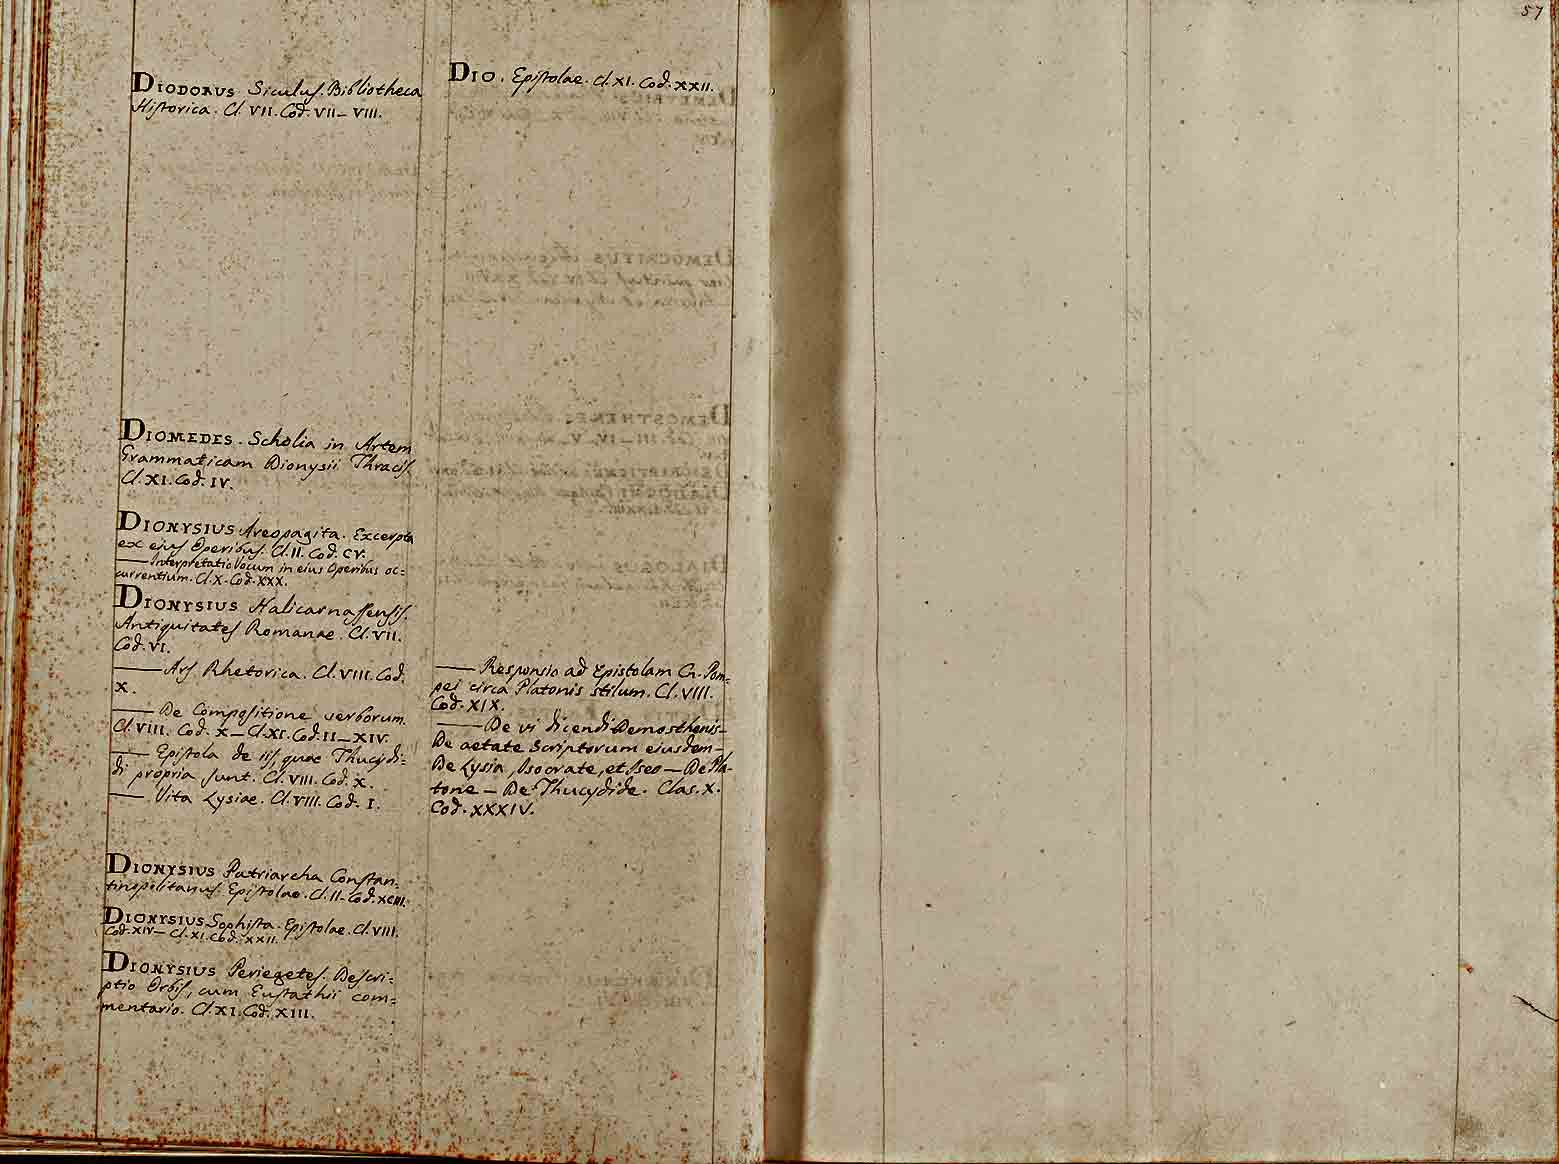 57
DIODORUS Siculus. Bibliotheca
Historica. Cl. VII. Cod. VII – VIII.
DIOMEDES. Scholia in Artem
Grammaticam Dionysii Thracis.
Cl. XI. Cod. IV.
DIONYSIUS Areopagita. Excerpta
ex ejus Operibus. Cl. II. Cod. CV.
—— Interpretatio Vocum in eius Operibus oc=
currentium. Cl. X. Cod. XXX.
DIONYSIUS Halicarnassensis.
Antiquitates Romanae. Cl. VII.
Cod. VI.
—— Ars Rhetorica. Cl. VIII. Cod.
X.
—— De Compositione verborum.
Cl. VIII. Cod. X – Cl. XI. Cod. II – XIV.
—— Epistola de iis, quae Thucydi=
di propria sunt. Cl. VIII. Cod. X.
—— Vita Lysiae. Cl. VIII. Cod. I.
DIONYSIUS Patriarcha Constan=
tinopolitanus. Epistolae. Cl. II. Cod. XCIII.
DIONYSIUS Sophista. Epistolae. Cl. VIII.
Cod. XIV – Cl. XI. Cod. XXII.
DIONYSIUS Periegetes. Descri=
ptio Orbis, cum Eustathii com=
mentario. Cl. XI. Cod. XIII.
DIO. Epistolae. Cl. XI. Cod. XXII.
—— Responsio ad Epistolam Cn. Pom=
pei circa Platonis stilum. Cl. VIII.
Cod. XIX.
—— De vi dicendi Demosthenis –
De aetate Scriptorum ejusdem –
De Lysia, Isocrate, et Iseo – De Pla=
tone – De Thucydide. Clas. X.
Cod. XXXIV.